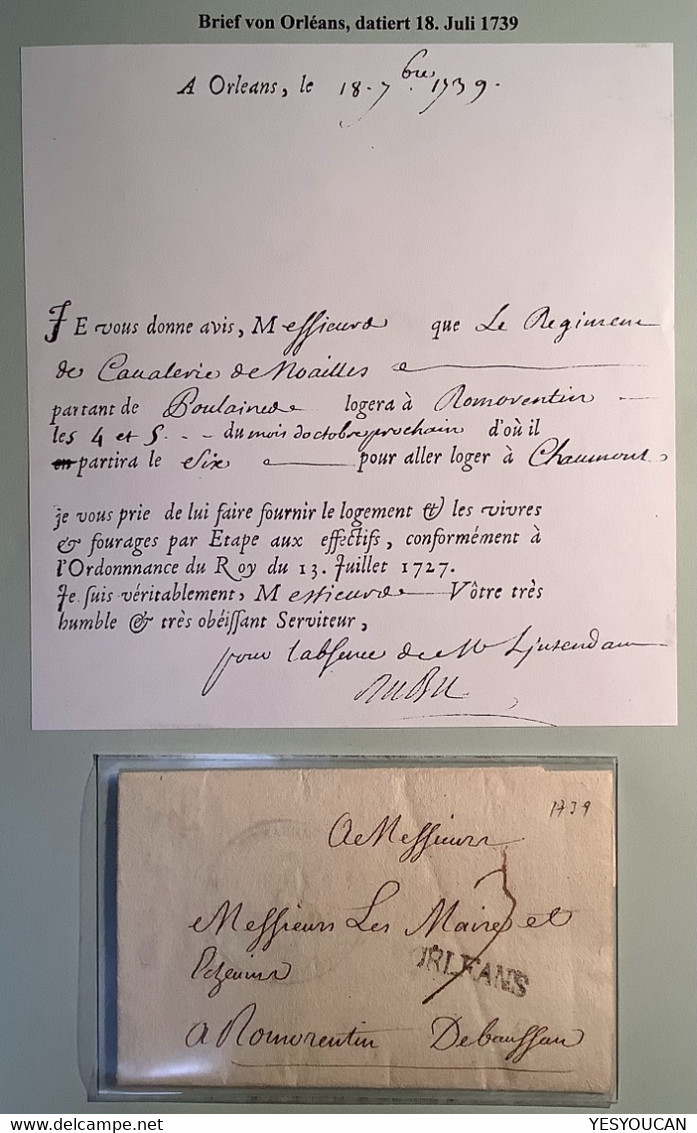 Brief von Orléans, datiert 18. Juli 1739
A Orleans, le 18. 7bre 1739.
JE vous donne avis, Messieurs que Le Regiment
de Caualerie de Noailles
partant de logera à Romorentin
les 4 et 5. du mois doctobre prochain d'où il
en partira le Six pour aller loger à Chaumont
je vous prie de lui faire fournir le logement & les vivres
& fourages par Etape aux effectifs, conformément à
l'Ordonnnance du Roy du 13. Juillet 1727.
Je suis véritablement, Messieurs Vôtre très
humble & très obéissant Serviteur,
pour labsence de Mr
1739
A Messieurs
Messieurs Les Maire et
ORLEANS
a Romorentin
YESYOUCAN